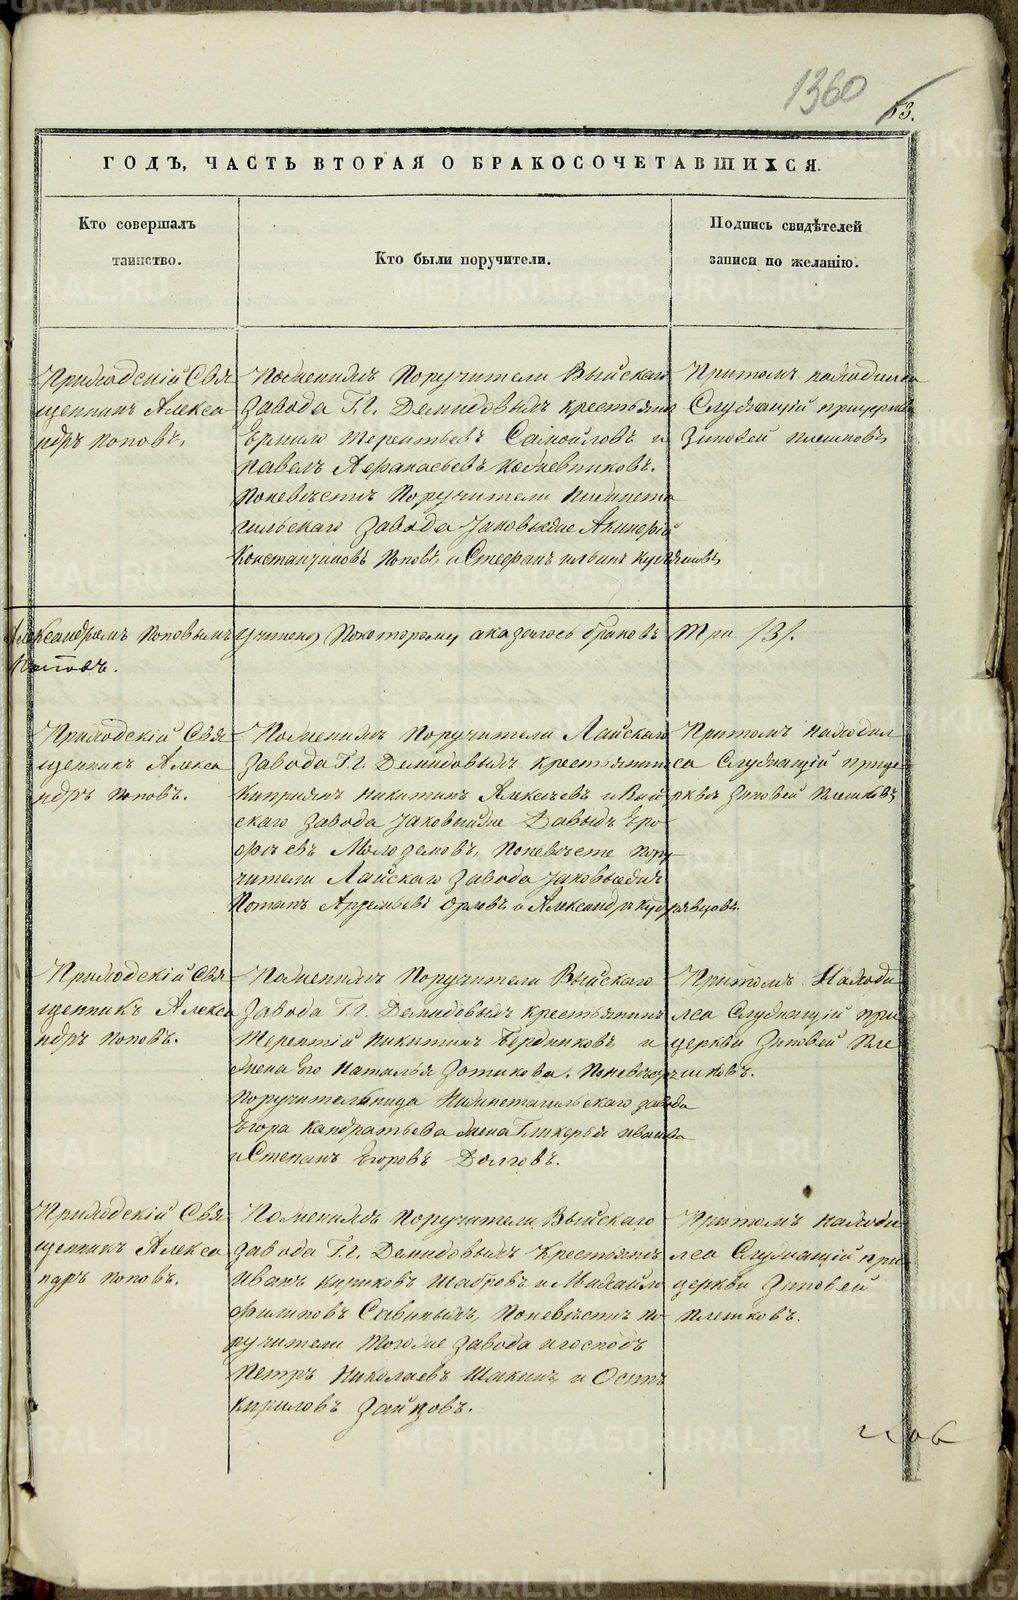 1360
53.
ГОДЪ, ЧАСТЬ ВТОРАЯ О БРАКОСОЧЕТАВШИХСЯ.
Кто совершалъ
таинство.
Кто были поручители.
Подпись свидѣтелей
записи по желанію.
Приходскій Свя
щенникъ Алекса
ндръ Поповъ,
Поженихѣ Поручители Выйскаго
Завода Г.Г. Демидовыхъ крестьяне
Ермило Терентьевъ Самойловъ и
Павелъ Афанасьевъ Кожевниковъ.
Поневѣстѣ Поручители Нижнета
гильскаго Завода
Константиновъ Поповъ, и Стефанъ
Притомъ находился
Служащій прицеркви
Зиновей Плешковъ
Александромъ Поповымъ учинено, Покоторому оказалось браковъ Три /3/.
Поповъ.
Приходскій Свя
щенникъ Алекса
ндръ Поповъ.
Поженихѣ Поручители Лайскаго
Завода Г.Г. Демидовыхъ крестьянинъ
Кипріянъ Никитинъ Алексѣевъ и Вый
скаго Завода Давыдъ Еро
фѣевъ Поневѣсте Пору
чители Лайскаго Завода
Потапъ Артемьевъ Орловъ и Александръ Кудрявцовъ.
Притомъ находил
са Служащій прице
рквѣ Зиновей Плешковъ
Приходскій Свя
щенникъ Алекса
ндръ Поповъ.
Поженихѣ Поручители Выйскаго
Завода Г.Г. Демидовыхъ крестьянинъ
Терентій Никитинъ Бердниковъ и
жена Его Наталья Зотикова. Поневѣстѣ
Поручительница Нижнетагильскаго завода
Егора Кандратьева жена Гликерья Иванова
и Степанъ Егоровъ Долговъ.
Притомъ Находи
лса Служащій при
церкви Зиновей Пле
шковъ.
Приходскій Свя
щенникъ Алекса
ндръ Поповъ.
Поженихѣ Поручители Выйскаго
Завода Г.Г. Демидовыхъ Крестьянѣ
Иванъ Кириковъ Шабровъ и Михайло
Филиповъ Савиныхъ, Поневѣстѣ По
ручители Тогоже Завода игосподъ
Петръ Николаевъ Шакинъ, и Осипъ
Кириловъ Зайцовъ.
Притомъ находи
лса Служащій при
церкви Зиновей
Плешковъ.
METRIKI.GASO-URAL.RU